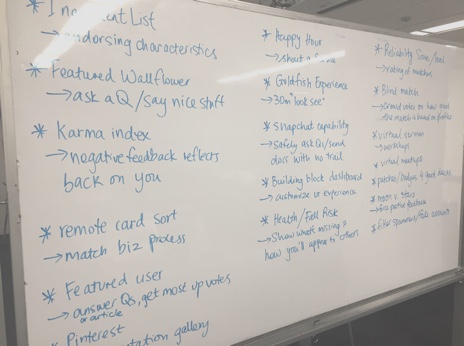 * In List
→endorsing characteristics
* Featured Wallflower
→ask a Q/say nice stuff
* Karma index
→negative feedback reflects
back on you
* remote card sort
→match biz process
* Featured user
→answer Qs, get most up votes
or article
* Pinterest
gallery
* Happy Hour
→shout a
* Goldfish Experience
→30m "look see"
* Snapchat capability
→Safely ask Qs/send
docs with no trail
* Building block dashboard
→customize ur experience
* Health/Fall Risk
→Show what's missing &
how you'll appear to others
* Reliability
→rating of matches
* Blind match
→crowd votes on how good
the match is based on profiles
* virtual
→workshops
* virtual meetups
* patches/badges 4 good
*
→
* filter spammers/fake accounts